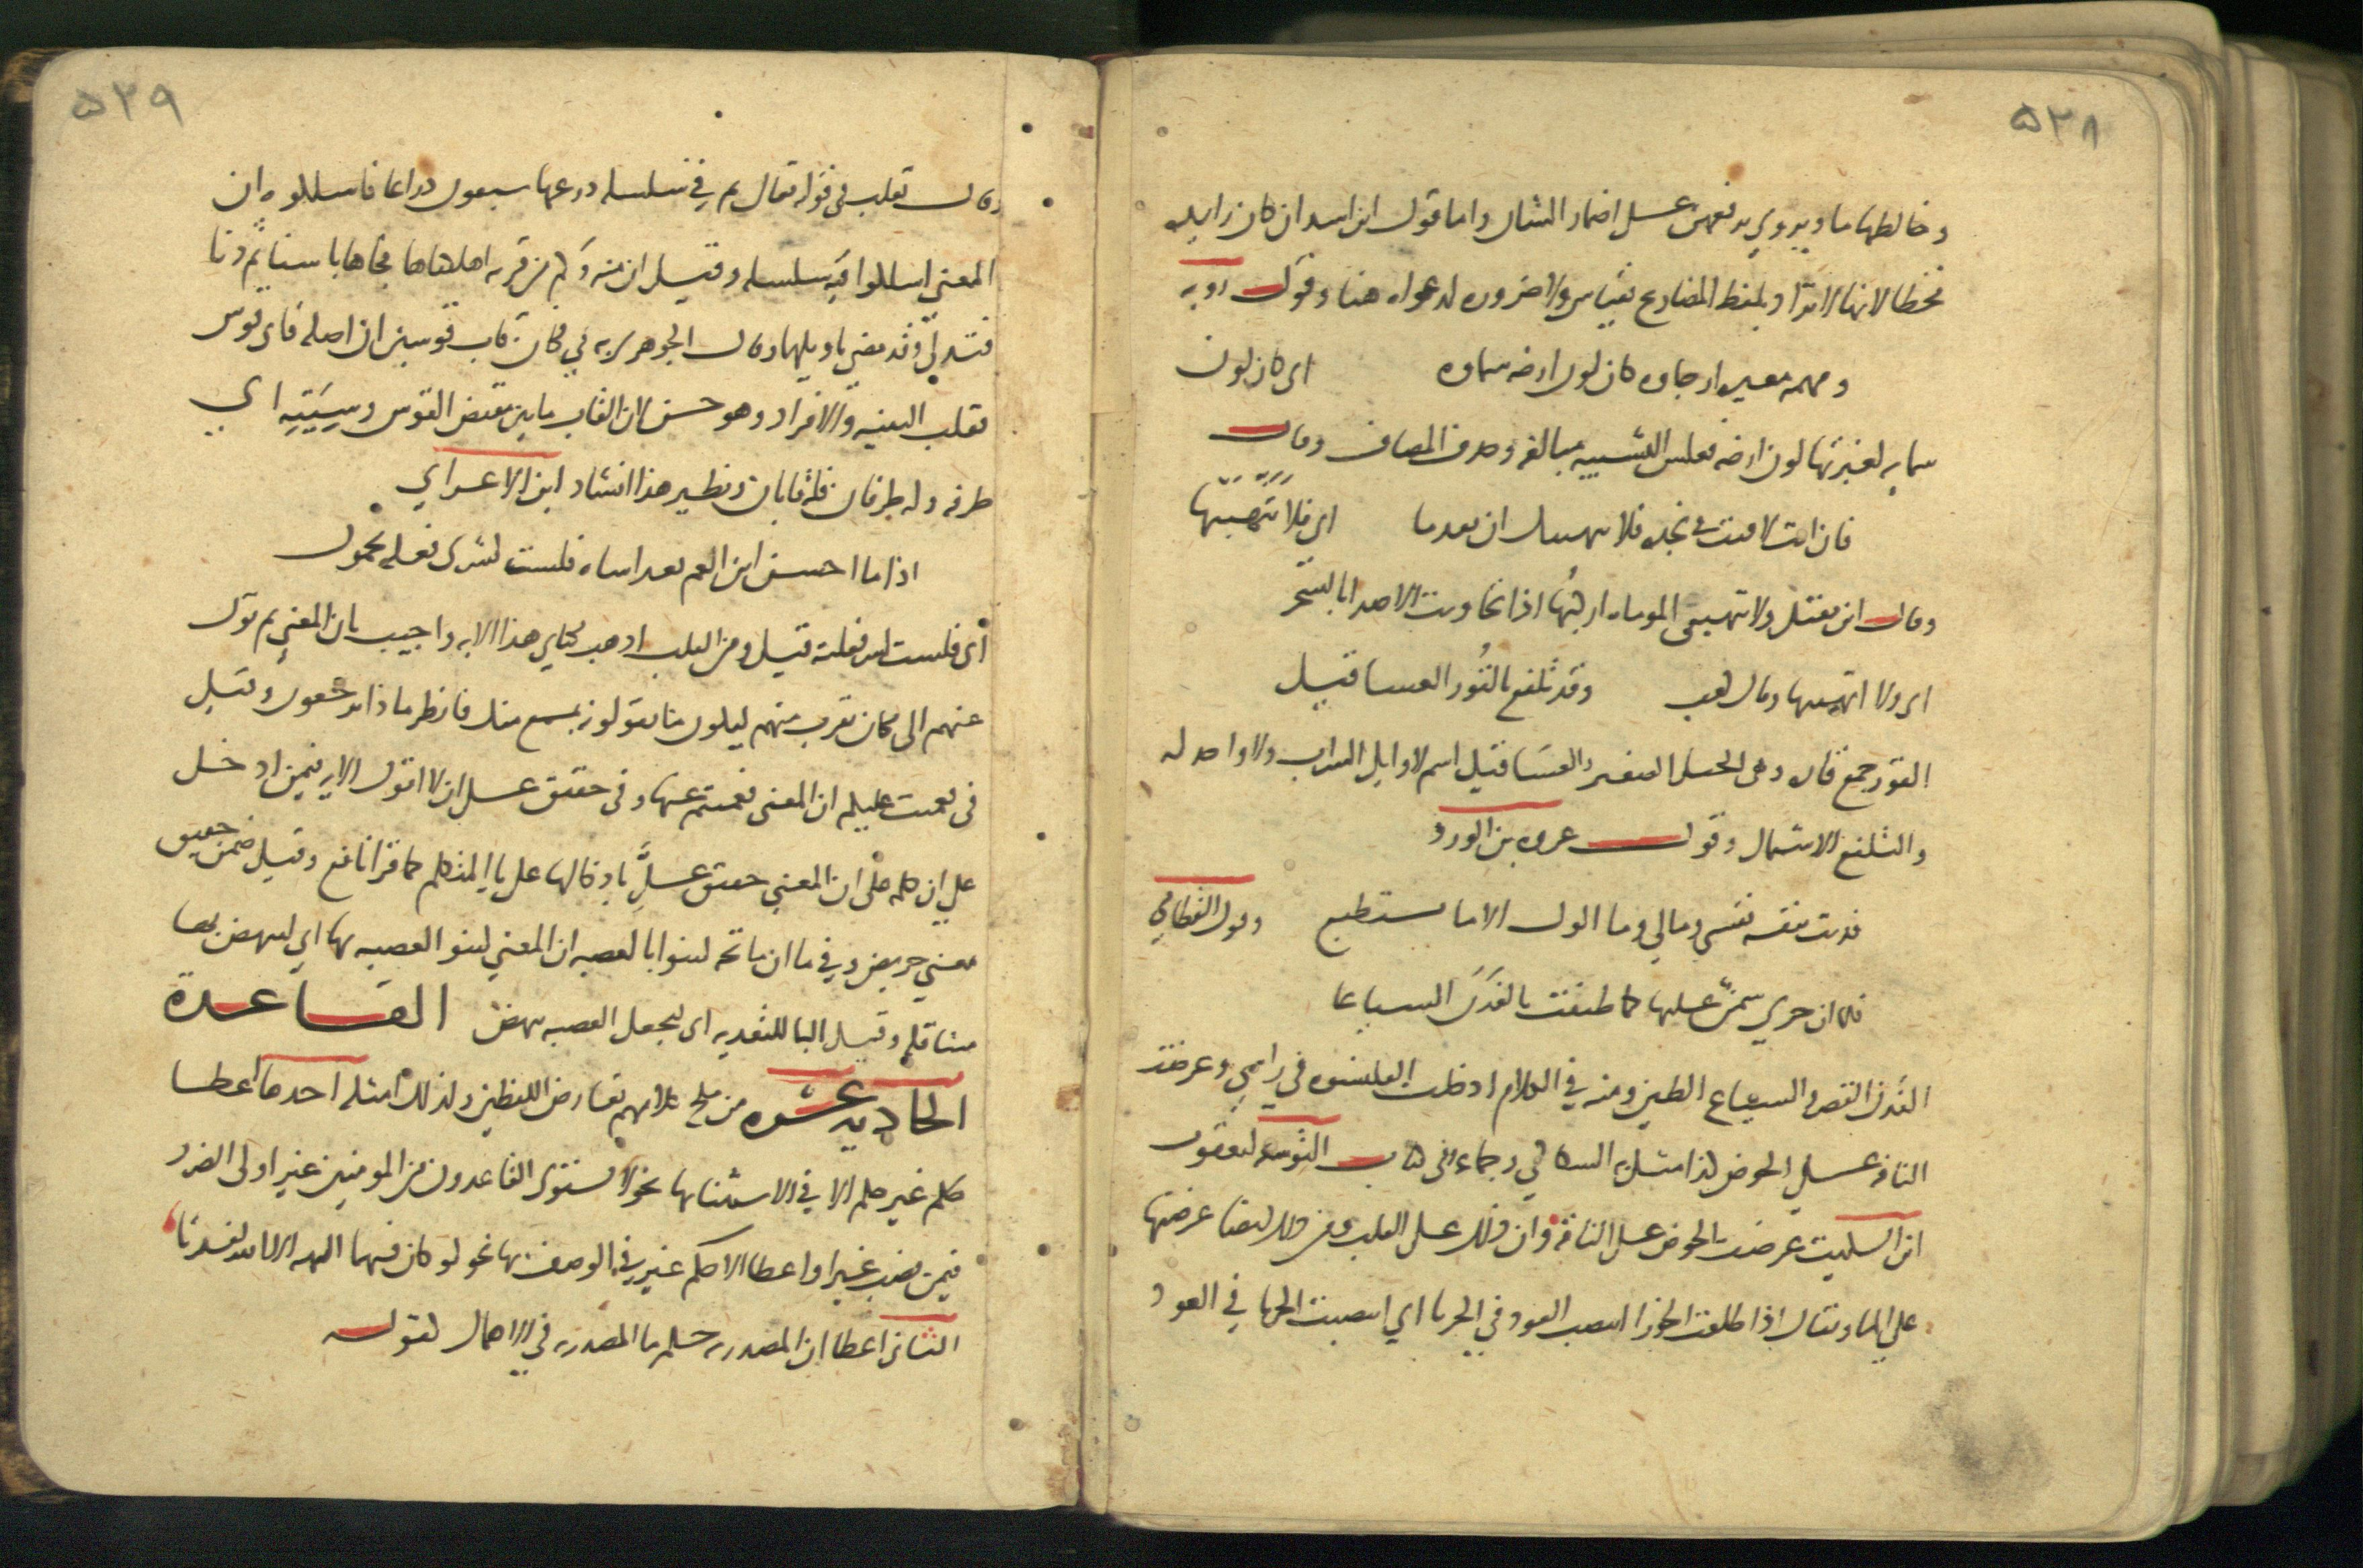 ٥٣٨
وخالطها ما ويروي برفعهن على اضمار الشان واما قول ابن اسد ان كان زايده
فخطا لانها لا تزاد بلفظ المضارع بقياس ولا ضروره تدعو اه هنا وقول روبه
ومهمه مغبره ارجاوه كان لون ارضه سماوه اي كان لون
سمايه لغبرتها لون ارضه فعكس التشبيه مبالغه وحذف المضاف وقال
فان انت لاقيت في نجده فلا تتهيبك ان تقدما اي فلا تتهيبها
وقال ابن مقبل ولا تهيبني الموماه اركبها اذا تجاوبت الاصدا بالسحر
اي ولا اتهيبها وقال كعب وقد تلفع بالقور العساقيل
القور جمع قاره وهي الجبل الصغير والعساقيل اسم لاوايل السراب ولا واحد له
والتلفع الاشتمال وقول عروه بن الورد
فديت بنفسه نفسي ومالي وما الوك الا ما استطيع وقول القطامي
فلما ان جري سمن عليها كما طينت بالفدن السياعا
الفدن القصر والسياع الطين ومنه في الكلام ادخلت القلنسوه في راسي وعرضت
الناقه على الحوض كذا مثل به السكاكي وجماعه وفي كتاب التوسعه ليعقوب
ابن السكيت عرضت الحوض على الناقه وان ذلك على القلب ومن ذلك ايضا عرضتها
على الماء ويقال اذا طلعت الجوزا انتصب العود في الحربا اي انتصبت الحربا في العود
٥٣٩
وقال ثعلب في قوله تعالى ثم في سلسله ذرعها سبعون ذراعا فاسلكوه ان
المعني اسلكوا فيه سلسله وقيل ان منه وكم من قريه اهلكناها فجاها باسنا ثم دنا
فتدلى وقد مضي تاويلها وقال الجوهري في فكان قاب قوسين ان اصله قابي قوس
فقلب التثنيه والافراد وهو حسن لان القاب ما بين مقبض القوس وسيته اي
طرفه وله طرفان فله قابان ونظير هذا انشاد ابن الاعرابي
اذا ما احسن ابن العم بعد اساه فلست لشري فعله بحمول
اي فلست لشر فعلته قيل ومن القلب اذهب بكتابي هذا الايه واجيب بان المعني ثم تول
عنهم الى مكان تقرب منهم ليكون ما يقولونه بمسمع منك فانظر ماذا يرجعون وقيل
في فعميت عليكم ان المعنى فعميتم عنها وفي حقيق على ان لا اقول الايه فيمن ادخل
علي ان كلمه على ان المعني حقيق علي بادخالها على يا المتكلم كما قرا نافع وقيل ضمن حقيق
معني حريص وفي ما ان مفاتحه لتنوا بالعصبه ان المعني لتنو العصبه بها اي لتنهض بها
متثاقله وقيل البا للتعديه اي لتجعل العصبه تنهض القاعدة
الحاديه عشره من ملح كلامهم تقارض اللفظين ولذلك امثله احدها اعطا
كلمه غير حكم الا في الاستثنا بها نحو لا يستوي القاعدون من المومنين غير اولى الضرر
فيمن نصب غيرا واعطا الا حكم غير في الوصف بها نحو لو كان فيهما الهه الا الله لفسدتا
الثاني اعطا ان المصدريه حكم ما المصدريه في الاهمال لقوله